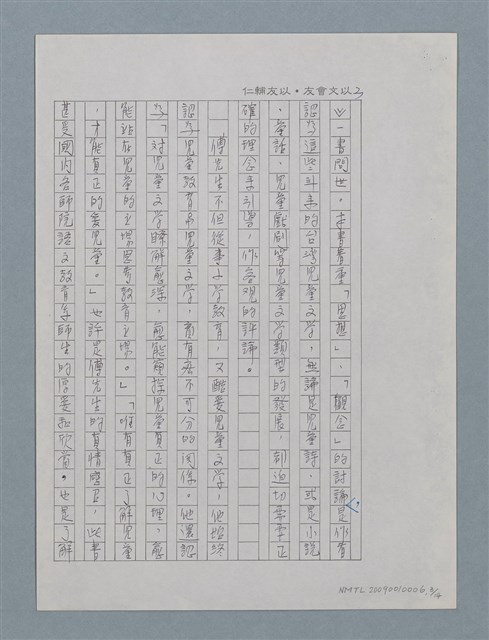 仁輔友以・友會文以
》一書問世。本書著重「思想」、「觀念」的討論是作者
認為這些年來的台灣兒童文學,無論是兒童詩、或是小說
、童話、兒童戲劇等兒童文學類型的發展,都迫切需要正
確的理念來引導,作客觀的評論。
傅先生不但從事小學教育,又酷愛兒童文學,他始終
認為兒童教育與兒童文學,實有密不可分的關係。他還認
為「對兒童文學瞭解愈深,愈能窺探兒童真正的心理,愈
能站在兒童的立場思考教育立場。」「唯有真正了解兒童
,才能真正的愛兒童。」也許是傅先生的真情感召,此書
甚受國內各師院語文教育系師生的喜愛和欣賞。也是了解
NMTL20090010006.3/4